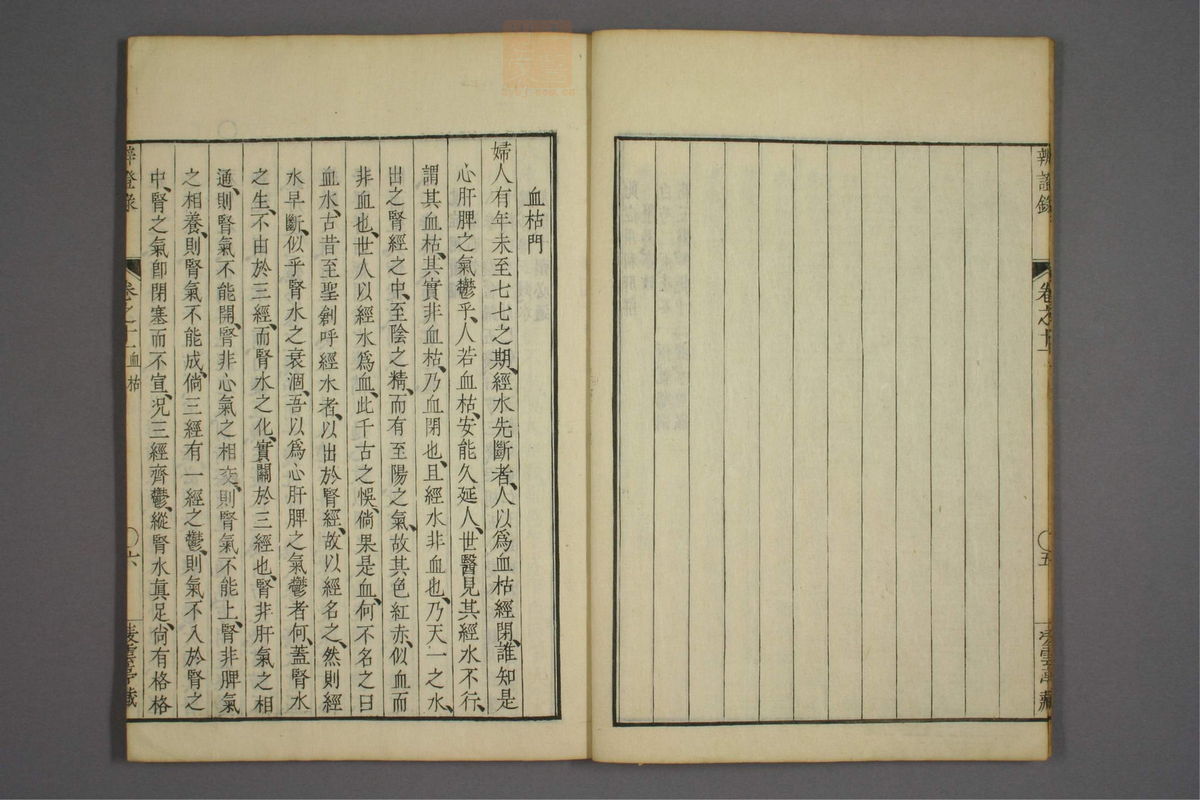 辨證錄 卷之十一 五 凌雲亭藏
血枯門
婦人有年未至七七之期、經水先斷者、人以爲血枯經閉、誰知是
心肝脾之氣鬱乎、人若血枯、安能久延人、世醫見其經水不行、
謂其血枯、其實非血枯、乃血閉也、且經水非血也、乃天一之水、
出之腎經之中、至陰之精、而有至陽之氣、故其色紅赤、似血而
非血也、世人以經水爲血、此千古之悞、倘果是血、何不名之曰
血水、古昔至聖創呼經水者、以出於腎經、故以經名之、然則經
水早斷、似乎腎水之衰涸、吾以爲心肝脾之氣鬱者何、蓋腎水
之生、不由於三經、而腎水之化、實關於三經也、腎非肝氣之相
通、則腎氣不能開、腎非心氣之相交、則腎氣不能上、腎非脾氣
之相養、則腎氣不能成、倘三經有一經之鬱、則氣不入於腎之
中、腎之氣卽閉塞而不宣、况三經齊鬱、縱腎水眞足、尙有格格
辨證錄 卷之十一 血枯 六 凌雲亭藏